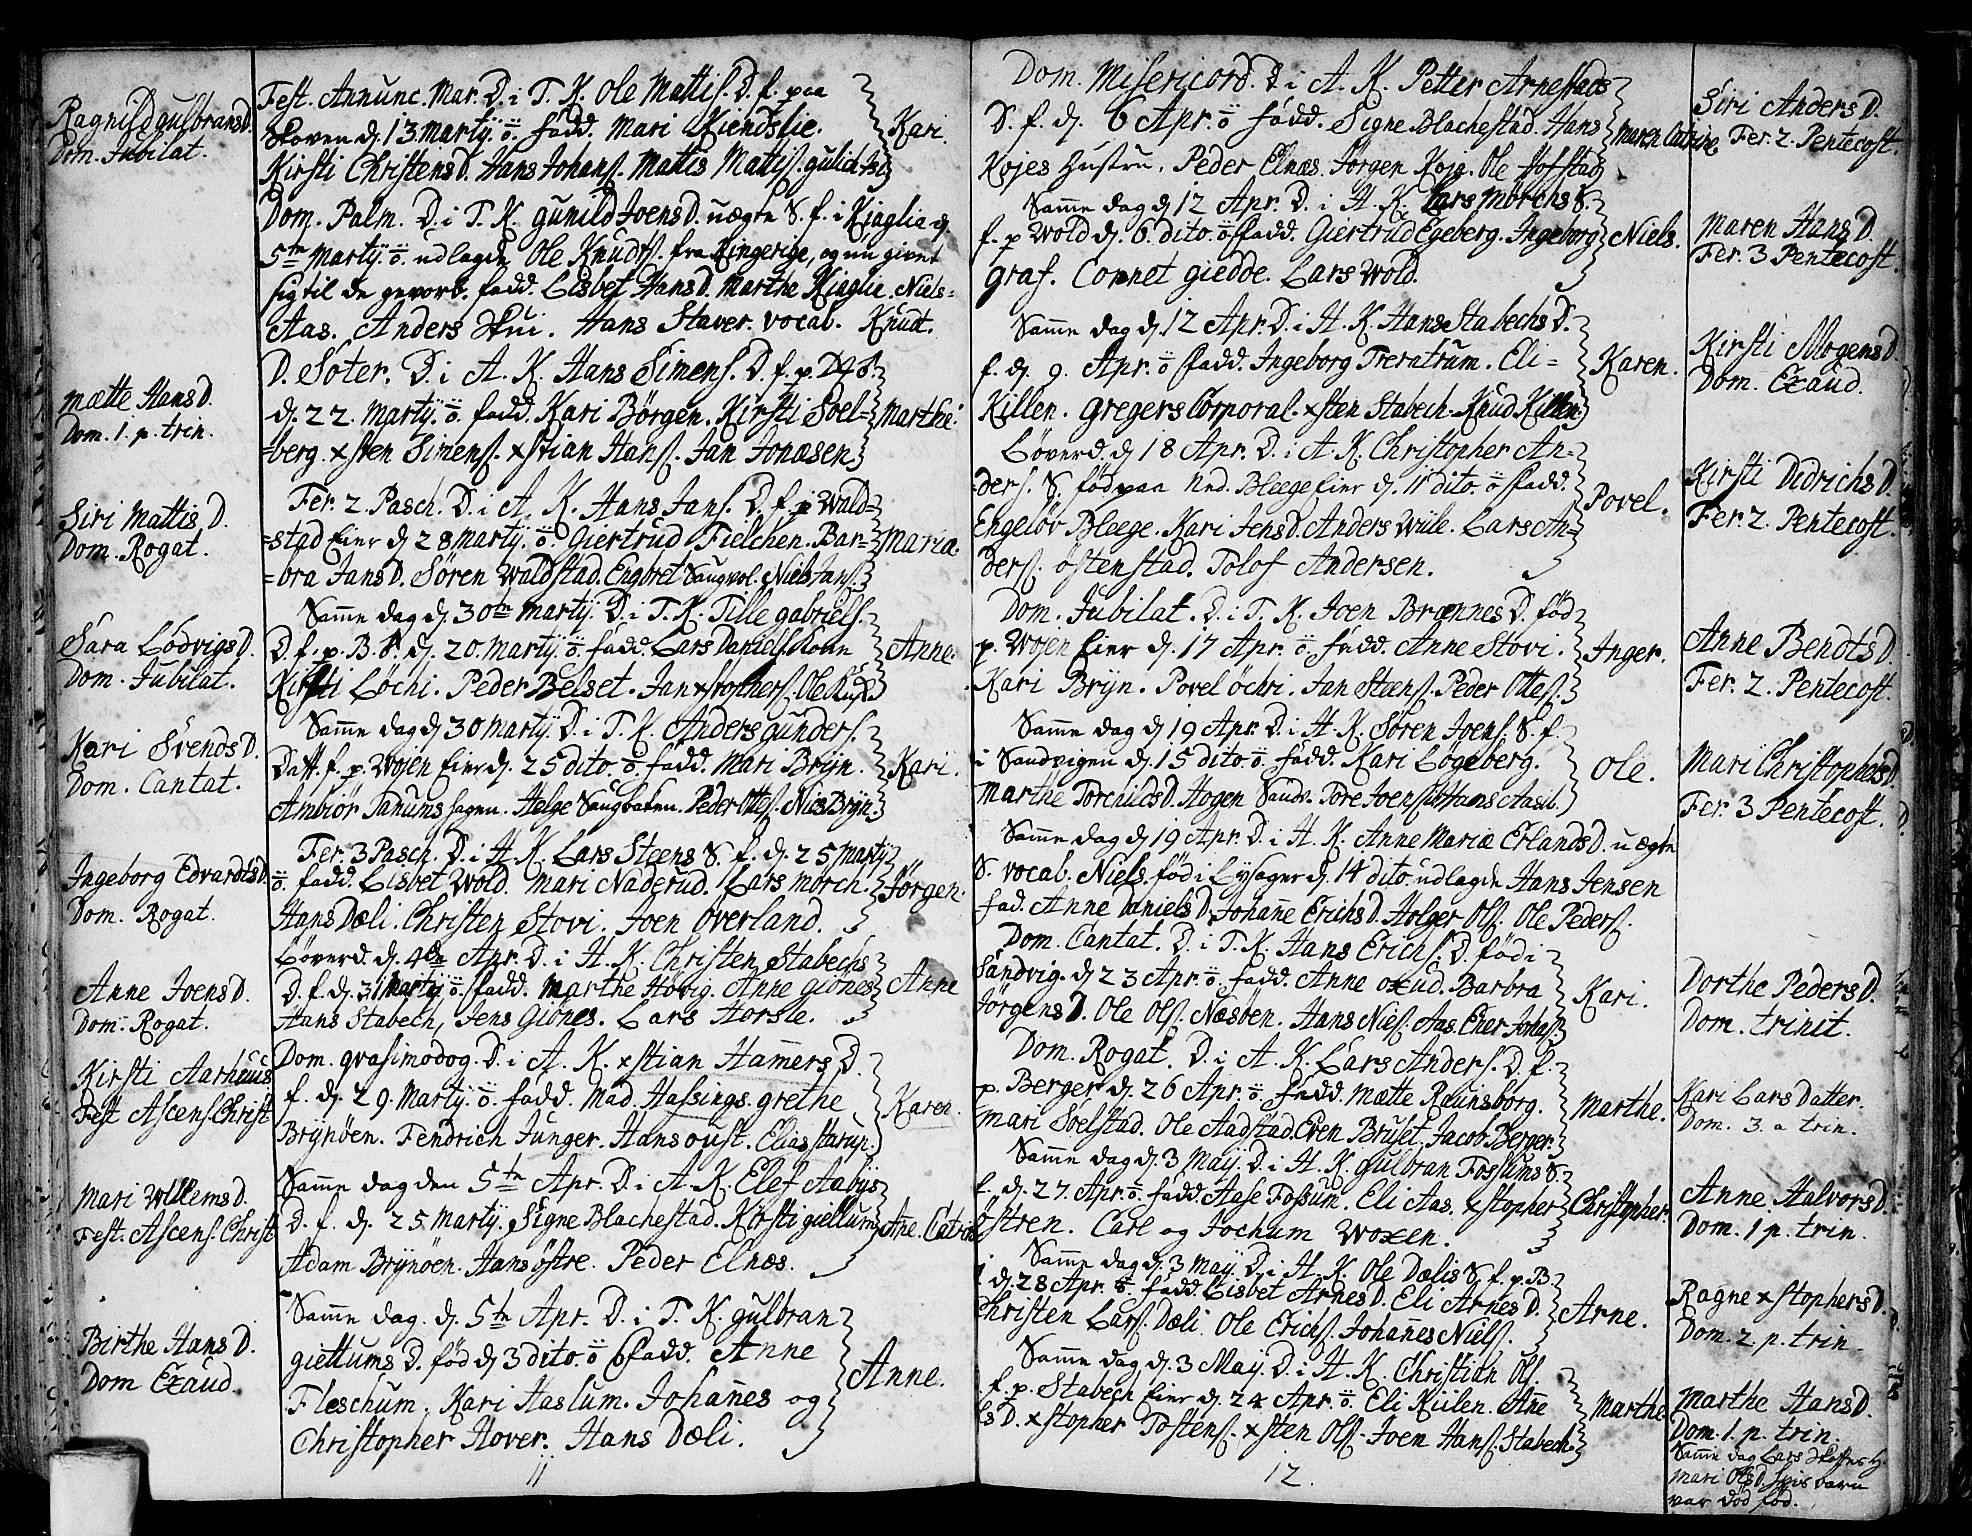 Ragnild gulbransD.
Dom. Jubilat.
mætte HansD.
Dom. 1. p. trin.
Siri Mattis D.
Dom. Rogat.
Sara LodvigsD.
Dom. Jubilat.
Kari SvendsD.
Dom. Cantat.
Ingeborg EdvardtsD.
Dom. Rogat.
Anne JoensD.
Dom. Rogat.
Kirsti Aarhuus
Fest Ascens. Christ
Mari WillemsD.
Fest. Ascens. Christ
Birthe HansD.
Dom Exaud.
Fest. Annunc. Mar. D. i T. K. Ole Mattis. D. f. paa
Skoven d. 13. Martij. ö. fadd. Mari Kiendslie. Kari.
Kirsti ChristensD. Hans Johans. Mattis Mattis.
Dom. Palm. D. i T. K. gunild JoensD. uægte S. f. i Kiaglia d.
5te Martij. ö. udlagde Ole Knuds. fra Ringerige, og nu givet
sig til de gevorb. fadd. Lisbet HansD. Marthe Kiaglie. Niels
Aas. Anders Skui. Hans Staver. vocab. Knud.
D. Soter. D. i A. K. Hans Simens. D. f. p.
d. 22. Martij. ö. fadd. Kari Börgen. Kirsti Soel= Marthe.
=berg. xsten Simens. xstian Hans. Jan Jonæsen.
Fer. 2. Pasch. D. i A. K. Hans Jans. D. f. p Wald=
=stad Eier d 28 Martij. ö. Giertrud Fielchen. Bar= Maria.
=bra JansD. Sören Waldstad. Engbret Saugvol. Niels Jans.
Samme dag d. 30te Martij. D. i T. K. Tille gabriels.
D. f. p. B. S. d. 20. Martij. ö. fadd. Lars Daniels. Kone Anne.
Kirsti Löchi. Peder Belset. Jan xstophers. Ole
Samme dag d 30 Martij D. i T. K. Anders gunders.
Datt. f. p. Wojen Eier d. 25 dito. ö. fadd. Mari Brijn. Kari.
Ambiör Tanumshagen. Helge Saugbaken. Peder Ottes. Niels Brijn.
Fer. 3 Pasch. D. i H. K. Lars Steens S. f. d. 25 Martij
ö. fadd. Lisbet Wold. Mari Naderud. Lars Morch. Jörgen.
Hans Dæli. Christen Stovi. Joen Overland.
Löverd. d. 4de Apr. D. i H. K. Christen Stabechs
D. f. d. 31 Martij ö. fadd. Marthe Hövig. Anne Giönes Anne
Hans Stabech, Jens Giönes. Lars Horsle.
Dom. qvasimodog. D. i A. K. xstian Hamers D.
f. d. 29. Martij. ö. fadd. Mad. Hassings. grethe Karen.
Brijnöen. Fendrich Junger. Hans oust. Elias starup.
Samme dag den 5te Apr. D. i A. K. Elef Aabijs
D. f. d. 25 Martij. Signe Blachestad. Kirsti giellum Ane. Catrin
Adam Brijnöen. Hans östre. Peder Elnæs.
Samme dag. d. 5te Apr. D. i T. K. gulbran
giettums D. föd d 3 dito. ö fadd. Anne
Fleschum. Kari Haslum. Johannes og Anne.
Christopher Hover. Hans Dæli.
11
Dom. Misericord. D i A. K. Petter Arnestads
S. f. d. 6 Apr. ö fadd. Signe Blachestad. Hans Maren Catrine
Kojes Hustru. Peder Elnæs. Jörgen Koje. Ole Hofstad
Samme dag d 12 Apr. D. i H. K. Lars MörchsS.
f. p Wold d. 6. dito. ö fadd. Giertrud Egeberg. Ingeborg Niels.
graf. Cornet giedde. Lars Wold.
Samme dag d. 12 Apr. D. i H. K. Hans StabechsD.
f. d. 9. Apr. ö fadd. Ingeborg Treratrum. Eli= Karen.
Killen. gregers Corporal. xsten Stabech. Knud Killen
Löverd. d 18 Apr. D. i A. K. Christopher An=
ders. S. föd paa Ned. Bleege Eier d. 11 dito. ö fadd. Povel.
Engelöv Bleege. Kari JensD. Anders Wiile. Lars An=
ders. östenstad. Tolof Andersen.
Dom. Jubilat. D. i T. K. Joen BrænnesD. föd
p. Wojen Eier d. 17 Apr. ö. fadd. Anne Stovi. Inger.
Kari Brijn. Povel öchri. Jan Stens. Peder Ottes.
Samme dag d 19 Apr. D. i H. K. Sören Joens. S. f.
i Sandvigen d. 15 dito. ö. fadd. Kari Lögeberg. Ole.
Marthe TorchildsD. Hogen Sandv. Tore Joens. Hans Aas.
Samme dag d 19 Apr. D. i H. K. Anne Maria ErlandsD. uægte
S. vocab. Niels. föd i Lijsager d. 14 dito. udlagde Hans Jensen
fad. Anne DanielsD. Johanne ErichsD. Holger Ols. Ole Peders.
Dom. Cantat. D. i T. K. Hans Erichs. D. föd i
Sandvig. d 23 Apr. ö. fadd. Anne oxud. Barbra Kari.
JörgensD. Ole Ols. Næsöen. Hans Niels. Aas. Ener Johas.
Dom. Rogat. D. i A. K. Lars Anders. D. f.
p. Berger d. 26 Apr. ö. fadd. Mætte Raunsborg. Marthe.
Mari Soelstad. Ole Aadstad. Even Bruset. Jacob Berger.
Samme dag d. 3 Maij. D. i H. K. gulbran FossumsS.
f. d. 27. Apr. ö. fadd. Aase Fossum. Eli Aas. xstopher Christopher.
östren. Carl og Jochum Woxen.
Samme dag d. 3 Maij. D. i H. K. Ole DælisS. f. p. B.
d. 28 Apr. ö. fadd. Lisbet ArnesD. Eli ArnesD. Arne.
Christen Lars. Dæli. Ole Erichs. Johannes Niels.
Samme dag d. 3 Maij. D. i H. K. Christian Ols.
f. p. Stabech Eier d. 24 Apr. ö. Eli Kiilen. Ane Marthe.
D. xstopher Tostens. xsten Ols. Joen Hans. Stabech.
12.
Siri AndersD.
Fer. 2. Pentecost.
Maren HansD.
Fer. 3 Pentecost.
Kirsti MogensD
Dom. Exaud.
Kirsti DidrichsD.
Fer. 2. Pentecost.
Anne BendtsD.
Fer. 2. Pentecost.
Mari ChristophersD.
Fer. 3 Pentecost.
Dorthe PedersD.
Dom. trinit.
Kari Lars Datter.
Dom. 3. a trin.
Anne HalvorsD.
Dom. 1 p. trin.
Ragne xstophersD.
Dom. 2. p. trin
Marthe HansD.
Dom. 1. p. trin.
Samme dag Lars
Mari OlsD. barn
var död föd.